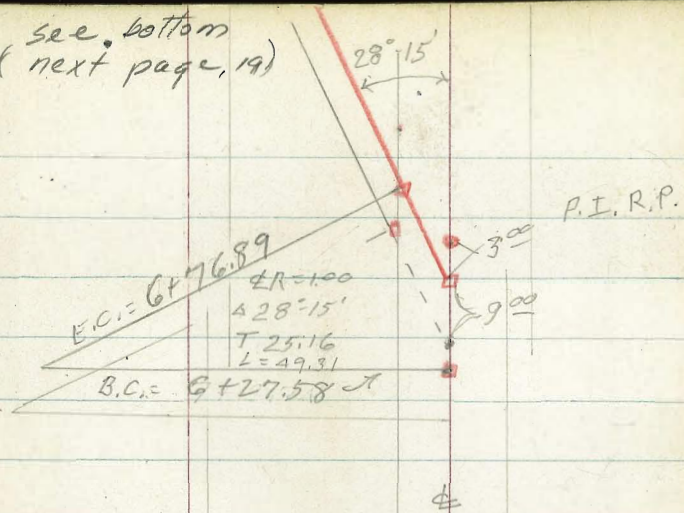 see bottom
( next page, 19)
28°-15'
P.I. R.P.
3 00
9 00
E.C. = 6+76.89
℄R=1.00
Δ 28°-15'
T 25.16
L = 49.31
B.C. = 6+27.58
℄